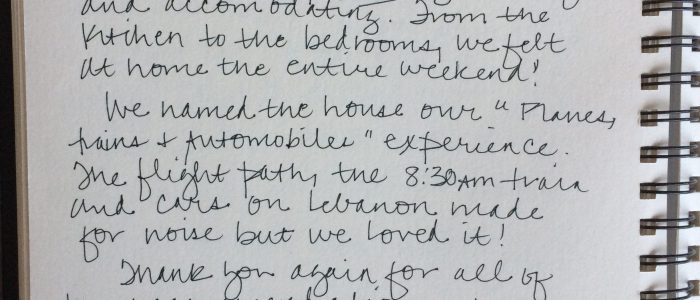 and accomodating. From the
Kitchen to the bedrooms, we felt
at home the entire weekend!
We named the house our "Planes,
trains & Automobiles" experience.
The flight path, the 8:30AM train
and cars on Lebanon made
for noise but we loved it!
Thank you again for all of